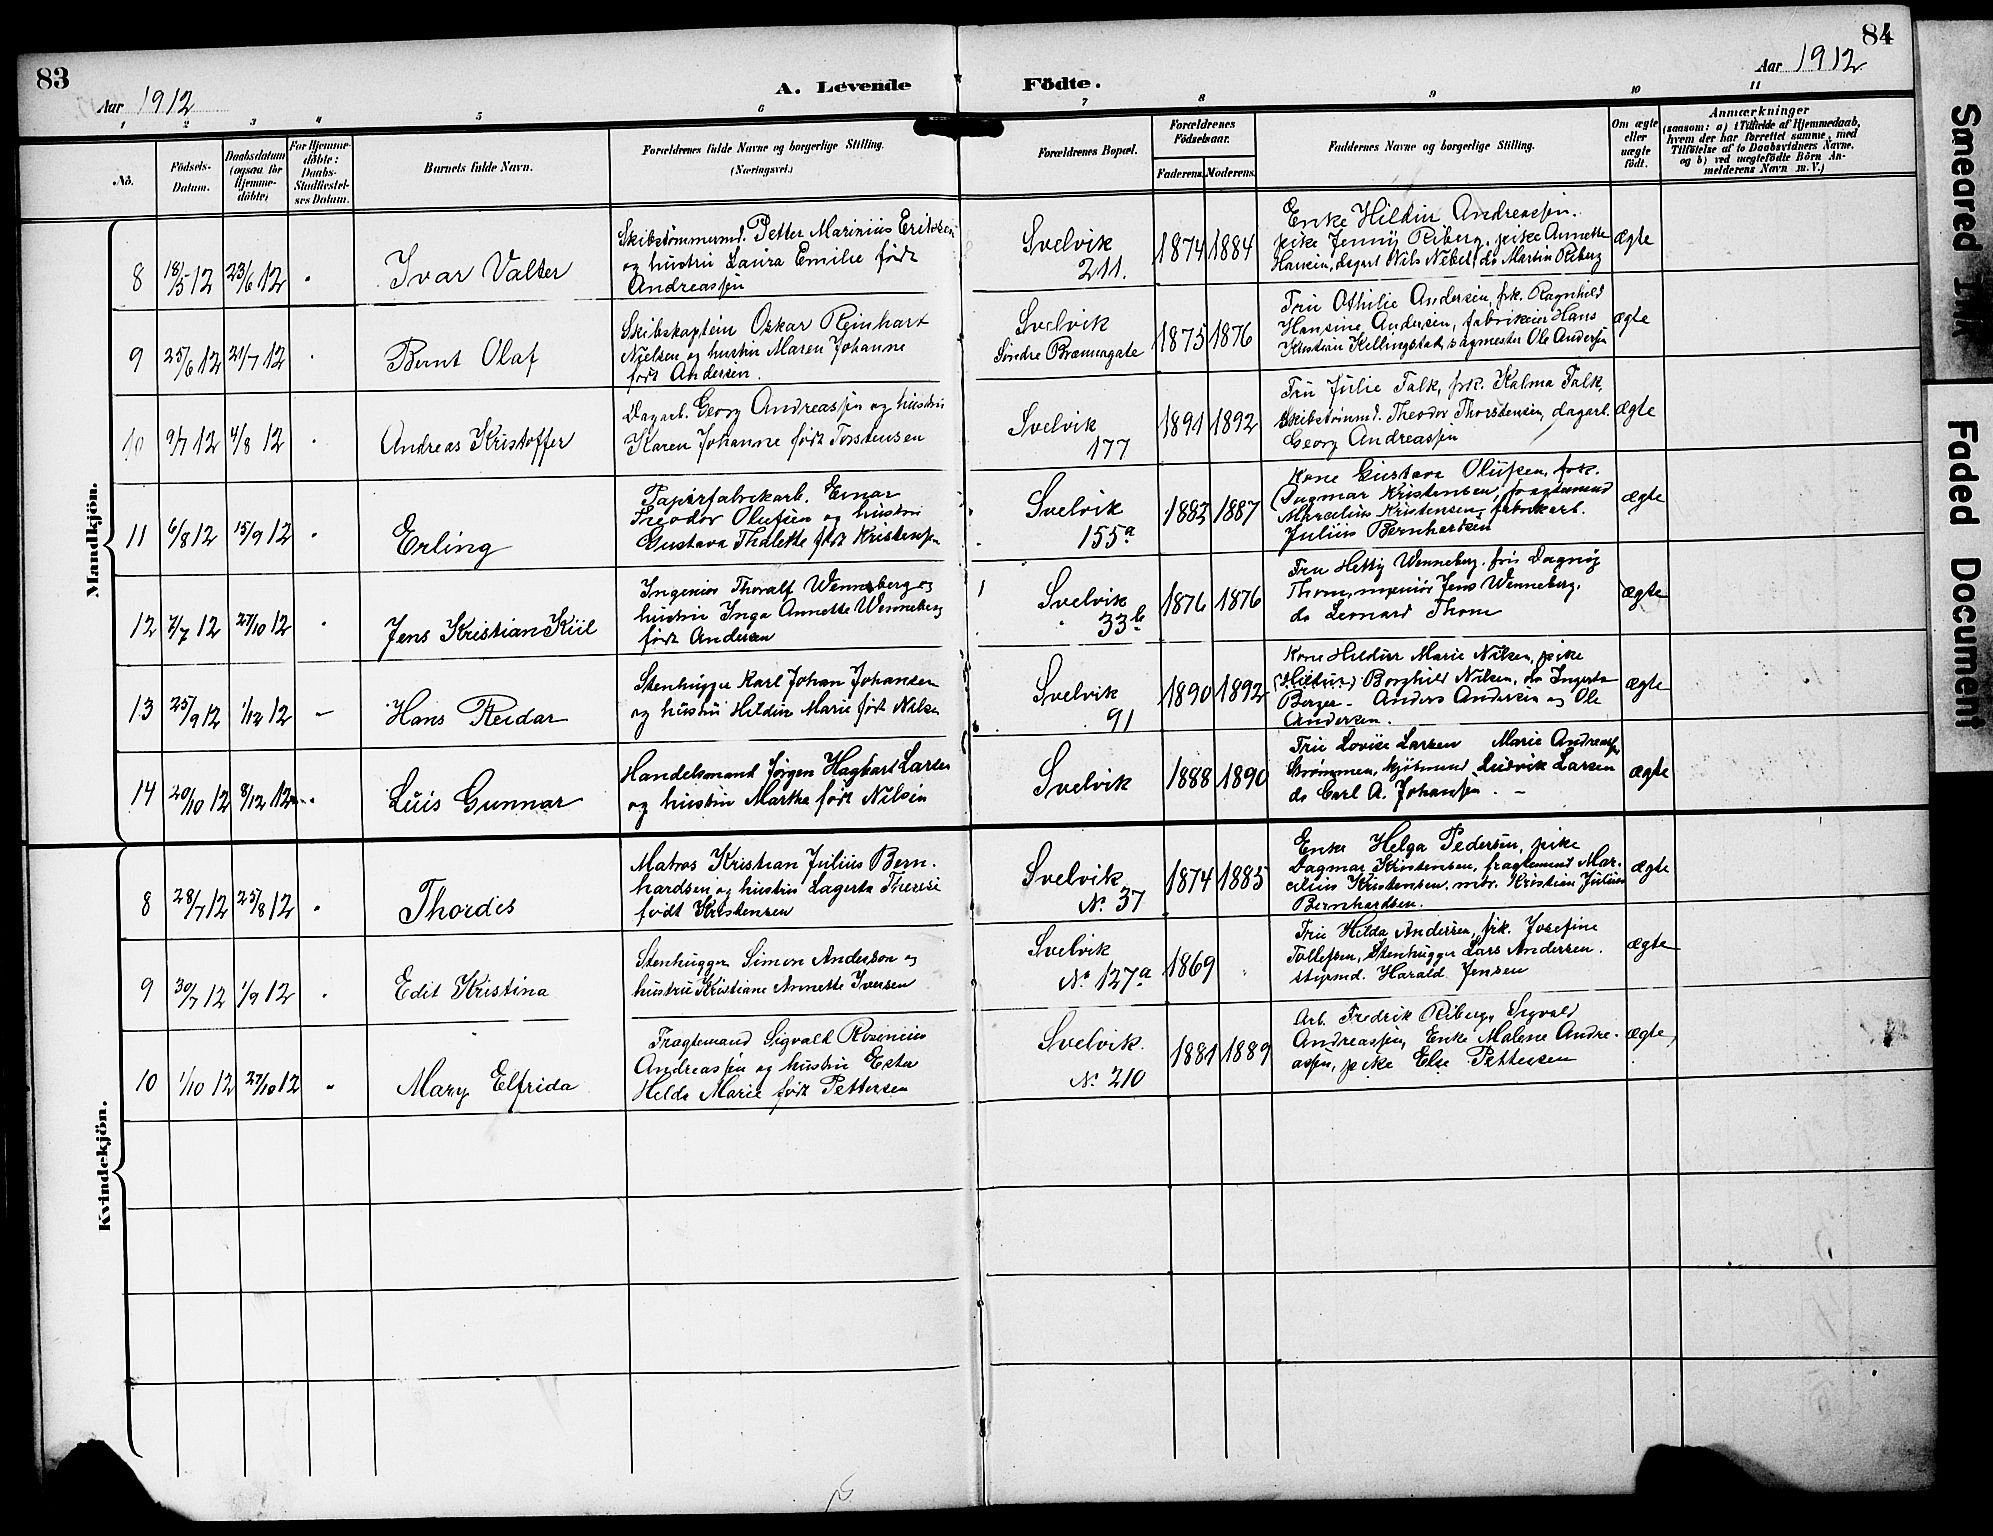 83
84
Aar 1912
A. Levende Födte.
Aar 1912
1 2 3 4 5 6 7 8 9 10 11
No.
Födsels-Datum.
Daabsdatum (ogsaa for Hjemme-döbte)
For Hjemme-döbte: Daabs-Stadfæstel-ses Datum.
Barnets fulde Navn.
Forældrenes fulde Navne og borgerlige Stilling.
(Næringsvei.)
Forældrenes Bopæl.
Forældrenes Födselsaar.
Faderens. Moderens.
Faddernes Navne og borgerlige Stilling.
Om ægte eller uægte födt.
Anmærkninger
(saasom: a) i Tilfælde af Hjemmedaab,
hvem der har forrettet samme, med
Tilföielse af to Daabsvidners Navne.
og b) ved uægtefödte Börn An-
melderens Navn m. V.)
Mandkjön.
8 18/5 12 23/6 12 " Ivar Valter
Skibstömmermd. Petter Marinius Eriksen
og hustru Laura Emilie født
Andreassen
Svelvik
211.
1874 1884
Enke Hildur Andreassen.
pike Jenny Riberg, pike Annette
Hansen, dagarb. Nils Nebel, do Martin Riberg
ægte
9 25/6 12 21/7 12 " Bernt Olaf
Skibskaptein Oskar Reinhart
Nielsen og hustru Maren Johanne
født Andersen.
Svelvik
Søndre Brænnagate
1875 1876
Fru Othilie Andersen, frk. Ragnhild
Hansine Andersen, fabrikeier Hans
Kristian Kellingstad, sagmester Ole Andersen
ægte
10 9/7 12 4/8 12 " Andreas Kristoffer
Dagarb. Georg Andreassen og hustru
Karen Johanne født Torstensen
Svelvik
177
1891 1892
Fru Julie Falk, frk. Kalma Falk,
Skibstömmd. Theodor Thorstensen, dagarb.
Georg Andreassen
ægte
11 6/8 12 15/9 12 " Erling
Papirfabrikarb. Einar
Theodor Olufsen og hustru
Gustava Thalette født Kristensen
Svelvik
155a
1883 1887
Kone Gustava Olufsen, frk.
Dagmar Kristensen, fragtemand
Marcelius Kristensen, fabrikarb.
Julius Bernhardsen
ægte
12 7/7 12 27/10 12 " Jens Kristian Kiil
Ingeniør Thoralf Wenneberg og
hustru Inga Annette Wenneberg
født Andersen
Svelvik
33b
1876 1876
Fru Hetty Wenneberg, fru Dagny
Thom, ingeniör Jens Wenneberg,
do Leonard Thom
ægte
13 25/9 12 1/12 12 – Hans Reidar
Stenhugger Karl Johan Johansen
og hustru Hildur Marie født Nilsen
Svelvik
91
1890 1892
Kone Hildur Marie Nilsen, pike
(Hildur) Borghild Nilsen, do Ingerda
Berger – Anders Andersen og Ole
Andersen.
ægte
14 20/10 12 8/12 12 Luis Gunnar
Handelsmand Jørgen Hagbart Larsen
og hustru Marthe født Nilsen
Svelvik
1888 1890
Fru Lovise Larsen Marie Andreassen
Strömmen, kjöbmand Ludvik Larsen
do Carl A. Johansen. –
ægte
Kvindekjön.
8 28/7 12 25/8 12 " Thordis
Matros Kristian Julius Bern-
hardsen og hustru Lagerta Therese
født Kristensen
Svelvik
No. 37
1874 1885
Enke Helga Pedersen, pike
Dagmar Kristensen, fragtemand Mar-
celius Kristensen, mtr. Kristian Julius
Bernhardsen.
ægte
9 30/7 12 1/9 12 " Edit Kristina
Stenhugger Simon Anderson og
hustru Kristiane Annette Iversen
Svelvik
No 127a
1869 "
Fru Hilda Andersen, frk. Josefine
Tollefsen, Stenhugger Lars Andersen.
styrmd. Harald Jensen
ægte
10 1/10 12 27/10 12 " Mary Elfrida
Fragtemand Sigvald Rosenius
Andreassen og hustru Ester
Helda Marie født Pettersen
Svelvik.
No. 210
1881 1889
Arb. Fredrik Riberg, Sigvald
Andreassen, Enke Malene Andre-
assen, pike Else Pettersen
ægte
Smeared Ink
Faded Document